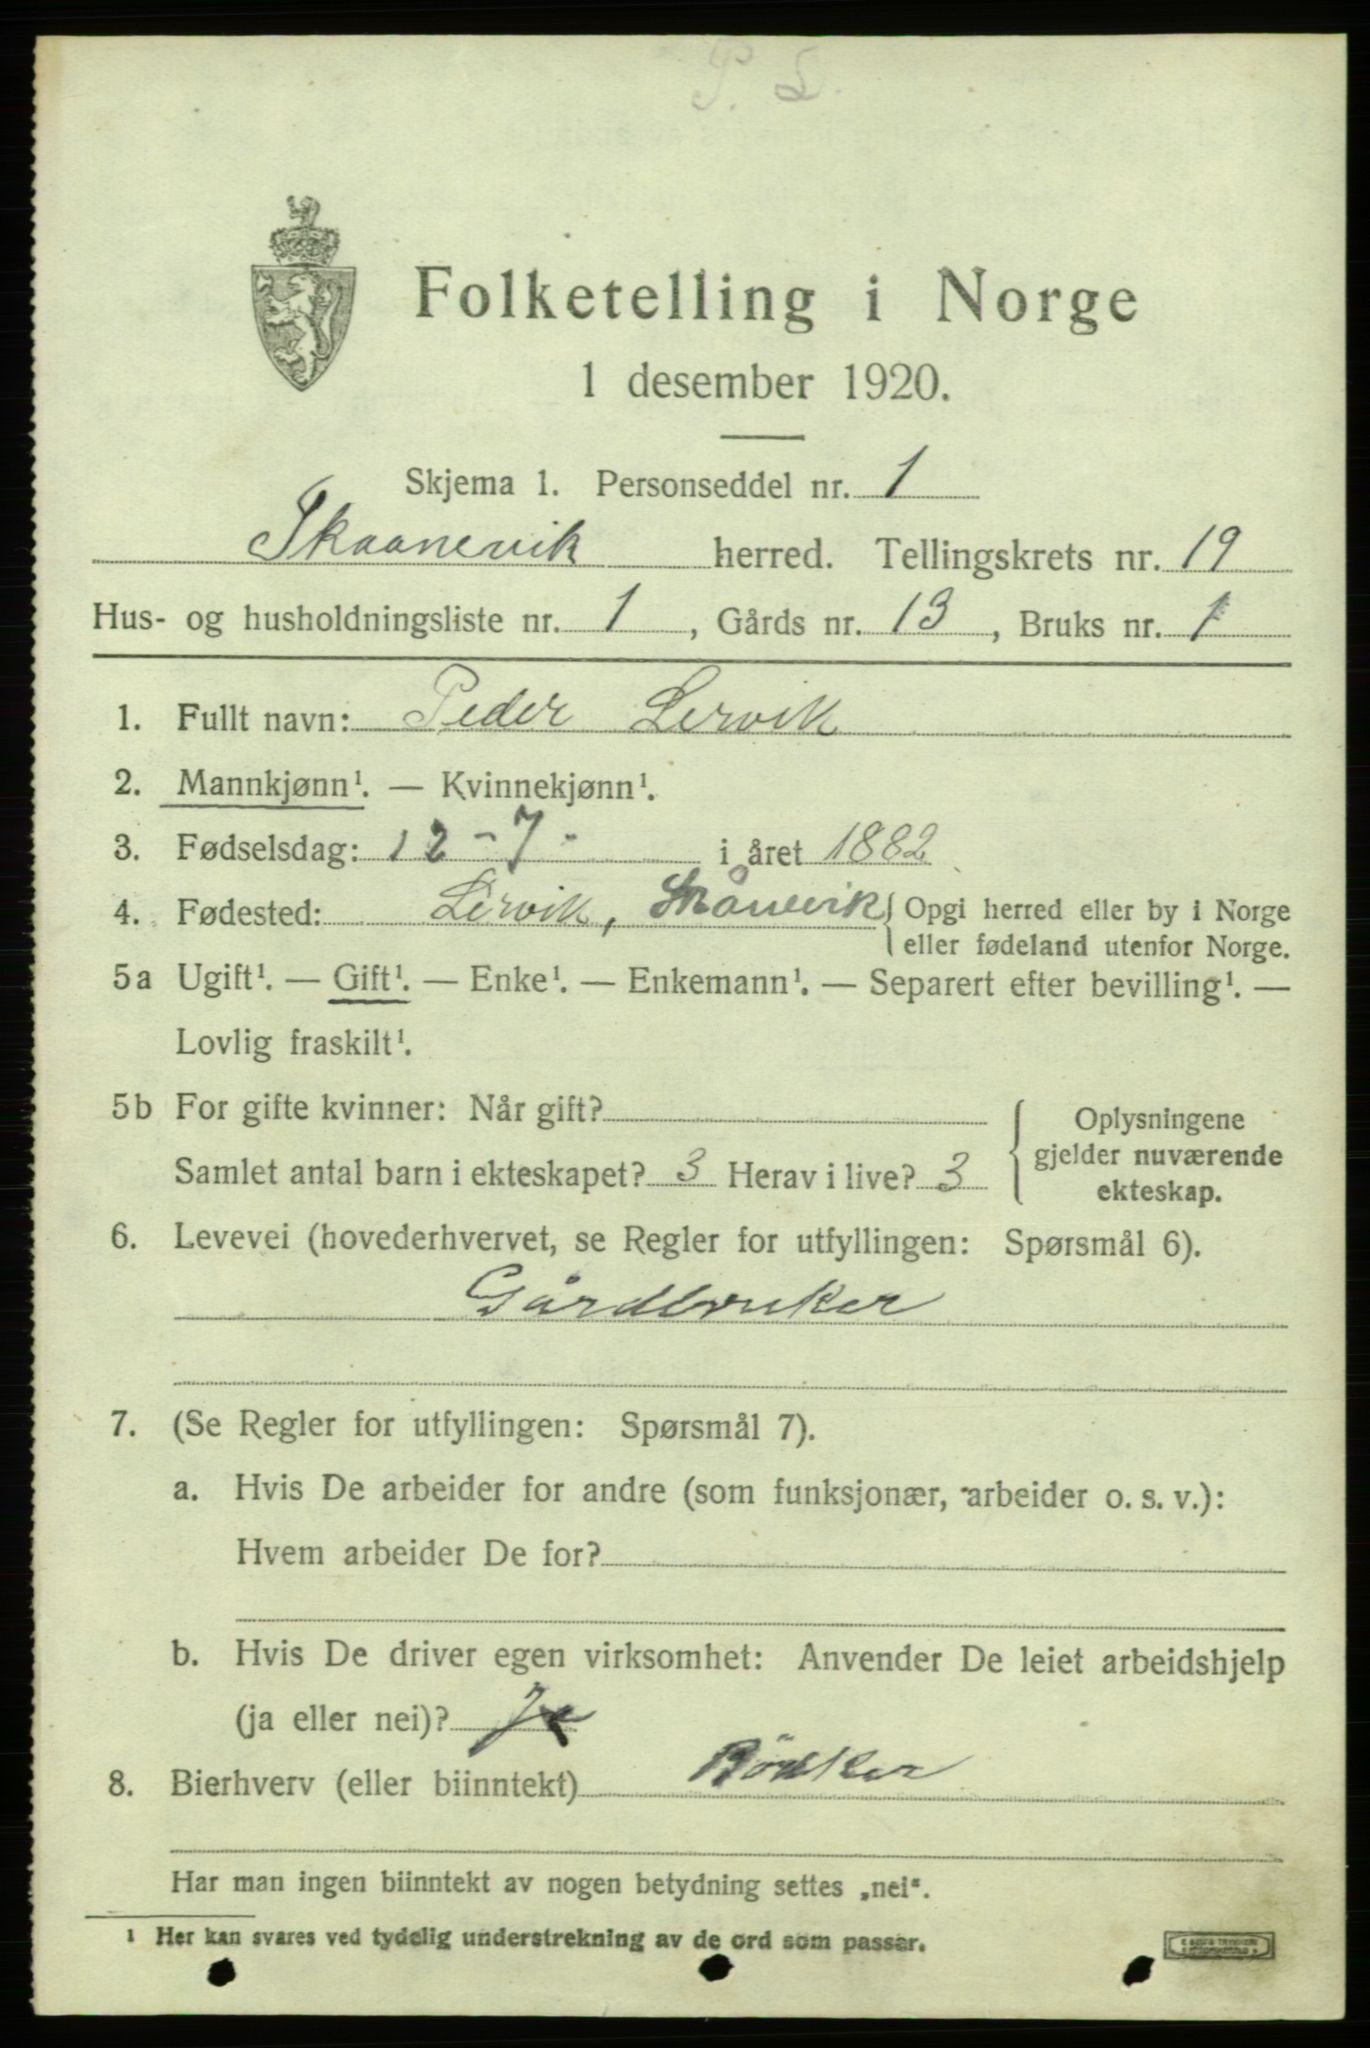 P. L.
Folketelling i Norge
1 desember 1920.
Skjema 1. Personseddel nr. 1
Skaanevik herred. Tellingskrets nr. 19
Hus- og husholdningsliste nr. 1, Gårds nr. 13, Bruks nr. 1
1. Fullt navn: Peder Lervik
2. Mannkjønn¹. — Kvinnekjønn¹.
3. Fødselsdag: 12-7- i året 1882
4. Fødested: Lervik, Skånevik { Opgi herred eller by i Norge
eller fødeland utenfor Norge.
5a Ugift¹. — Gift¹. — Enke¹. — Enkemann¹. — Separert efter bevilling¹. —
Lovlig fraskilt¹.
5b For gifte kvinner: Når gift?
Samlet antal barn i ekteskapet? 3 Herav i live? 3
Oplysningene
gjelder nuværende
ekteskap.
6. Levevei (hovederhvervet, se Regler for utfyllingen: Spørsmål 6).
Gårdbruker
7. (Se Regler for utfyllingen: Spørsmål 7).
a. Hvis De arbeider for andre (som funksjonær, arbeider o. s. v.):
Hvem arbeider De for?
b. Hvis De driver egen virksomhet: Anvender De leiet arbeidshjelp
(ja eller nei)? Ja
8. Bierhverv (eller biinntekt) Bödker
Har man ingen biinntekt av nogen betydning settes „nei“.
¹ Her kan svares ved tydelig understrekning av de ord som passer.